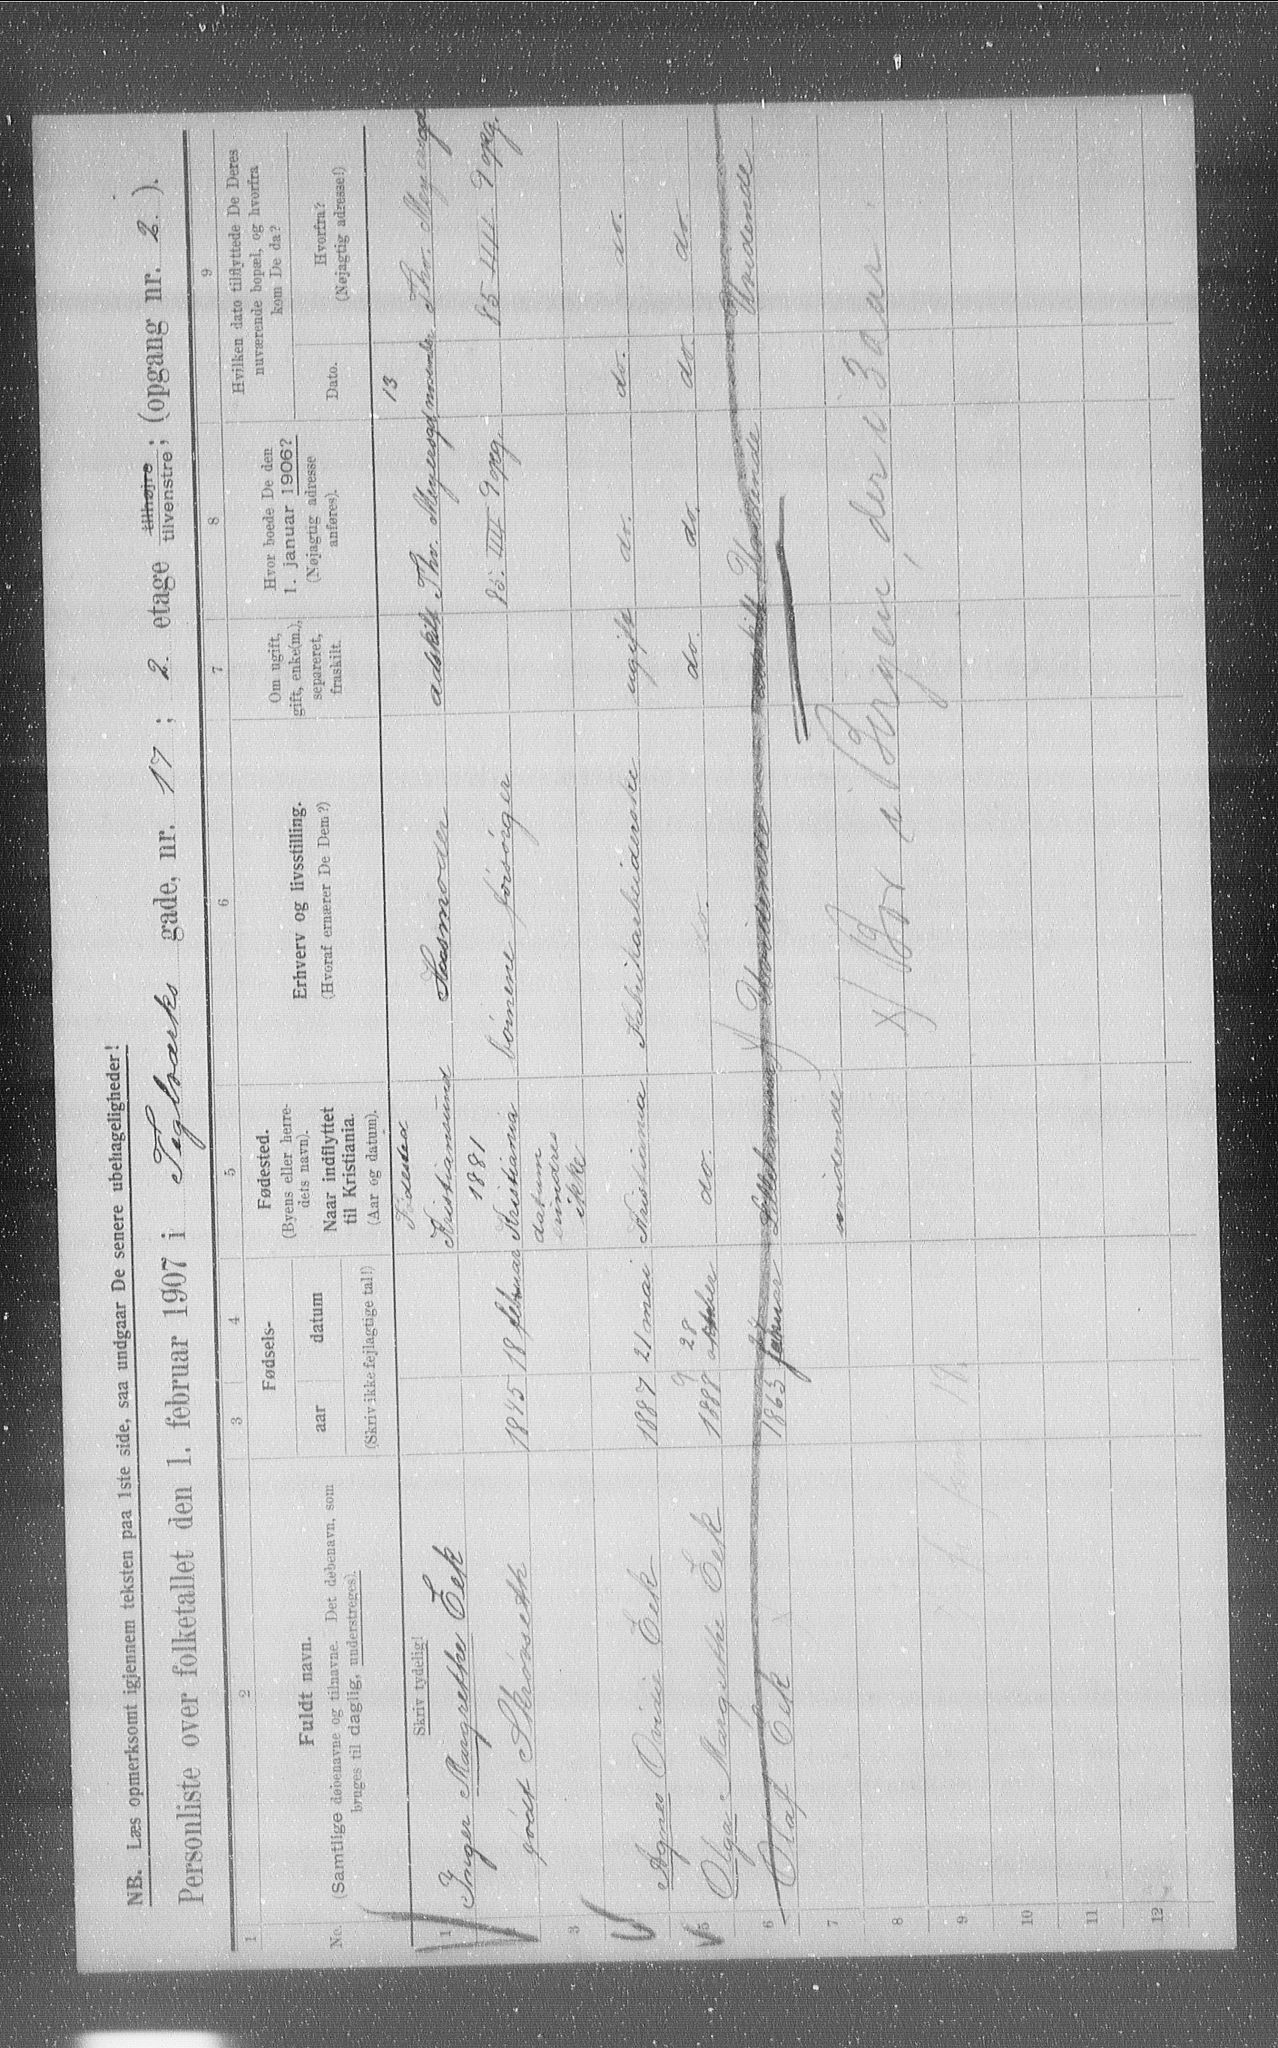 NB. Læs opmerksomt igjennem teksten paa 1ste side, saa undgaar De senere ubehageligheder!
Personliste over folketallet den 1. februar 1907 i Teglværks gade, nr. 17; 2 etage tilhøjre tilvenstre; (opgang nr. 2.).
1 2 3 4 5 6 7 8 9
No.
Fuldt navn.
(Samtlige døbenavne og tilnavne. Det døbenavn, som
bruges til daglig, understreges).
Fødsels-
aar datum
(Skriv ikke fejlagtige tal!)
Fødested.
(Byens eller herre-
dets navn).
Naar indflyttet
til Kristiania.
(Aar og datum).
Erhverv og livsstilling.
(Hvoraf ernærer De Dem?)
Om ugift,
gift, enke(m.),
separeret,
fraskilt.
Hvor boede De den
1. januar 1906?
(Nøjagtig adresse
anføres).
Hvilken dato tilflyttede De Deres
nuværende bopæl, og hvorfra
kom De da?
Dato.
Hvorfra?
(Nøjagtig adresse!)
Skriv tydelig!
Fødested 13
1 Inger Margrethe Eek Kristiansund Husmoder adskilt Thv. Meyersgd november Thv. Meyersgd
1881
født Skrövseth 1845 18 februar Kristiania börnene forsörger 85 IIII 9 opg. 85 IIII 9 opg.
datum
erindres
3 ikke
Agnes Ovidie Eek 1887 21 mai Kristiania Fabrikarbeiderske ugift do. do. do.
28
5 Olga Margrethe Eek 1888 oktober do. do. do. do. do. do.
6 Olaf Eek 1863 februar Uvidende Uvidende
7 uvidende
8 x/ Bor i Bergen, der i 3 aar.
9
10
11
12